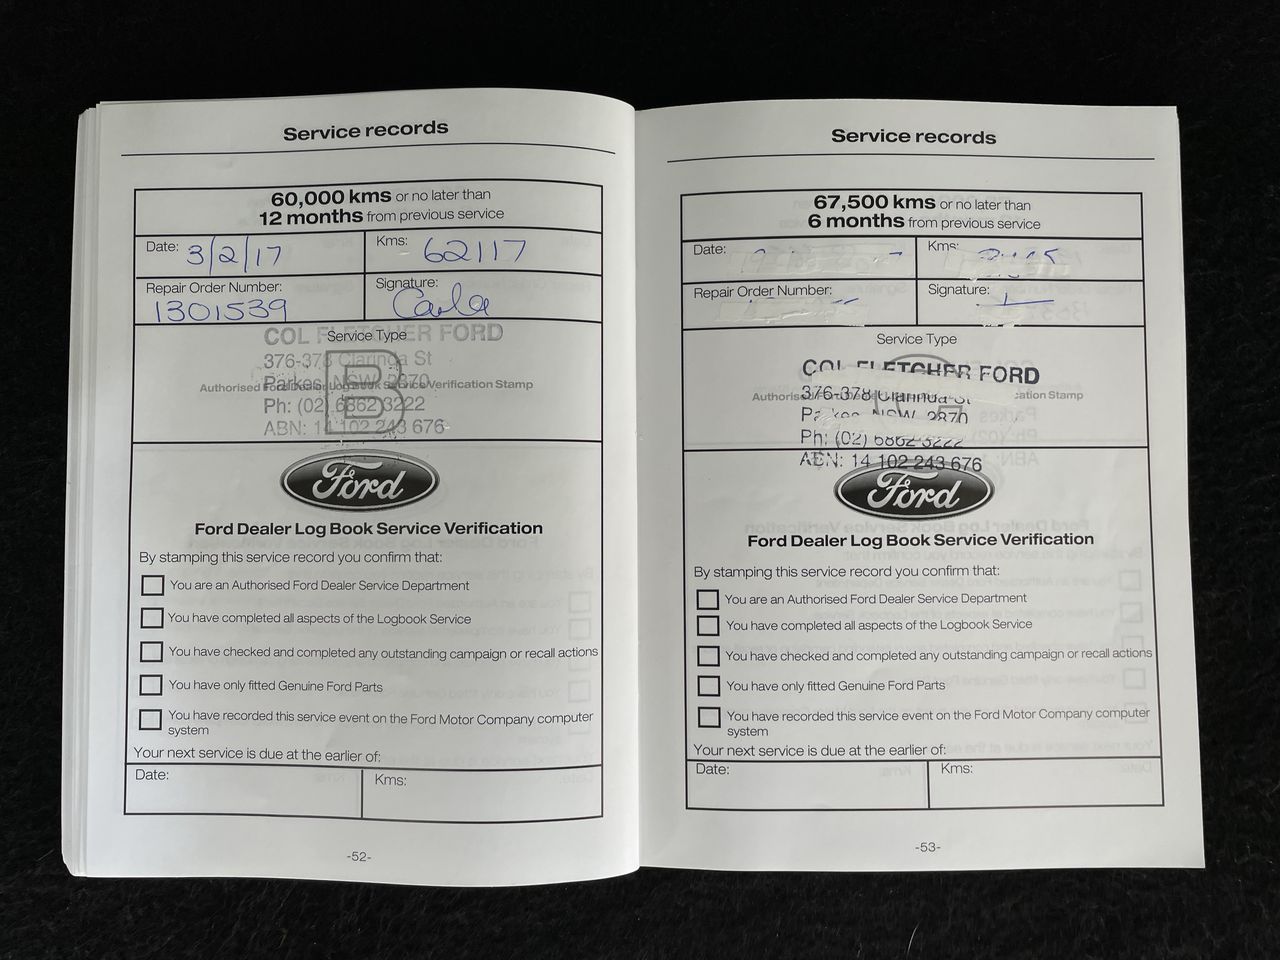 Service records
60,000 kms or no later than
12 months from previous service
Date: 3/2/17
Kms: 62117
Repair Order Number:
1301539
Signature:
Carla
COL FLETCHER FORD
Service Type
376-378 Clarinda St
B
Parkes NSW 2870
Authorised Ford Dealer Log Book Service Verification Stamp
Ph: (02) 6862 3222
ABN: 14 102 243 676
Ford
Ford Dealer Log Book Service Verification
By stamping this service record you confirm that:
You are an Authorised Ford Dealer Service Department
You have completed all aspects of the Logbook Service
You have checked and completed any outstanding campaign or recall actions
You have only fitted Genuine Ford Parts
You have recorded this service event on the Ford Motor Company computer
system
Your next service is due at the earlier of:
Date:
Kms:
-52-
Service records
67,500 kms or no later than
6 months from previous service
Date:
Kms:
Repair Order Number:
Signature:
Service Type
COL FLETCHER FORD
376-378 Clarinda St
Authorised
ation Stamp
Parkes NSW 2870
Ph: (02) 6862 3222
ABN: 14 102 243 676
Ford
Ford Dealer Log Book Service Verification
By stamping this service record you confirm that:
You are an Authorised Ford Dealer Service Department
You have completed all aspects of the Logbook Service
You have checked and completed any outstanding campaign or recall actions
You have only fitted Genuine Ford Parts
You have recorded this service event on the Ford Motor Company computer
system
Your next service is due at the earlier of:
Date:
Kms:
-53-